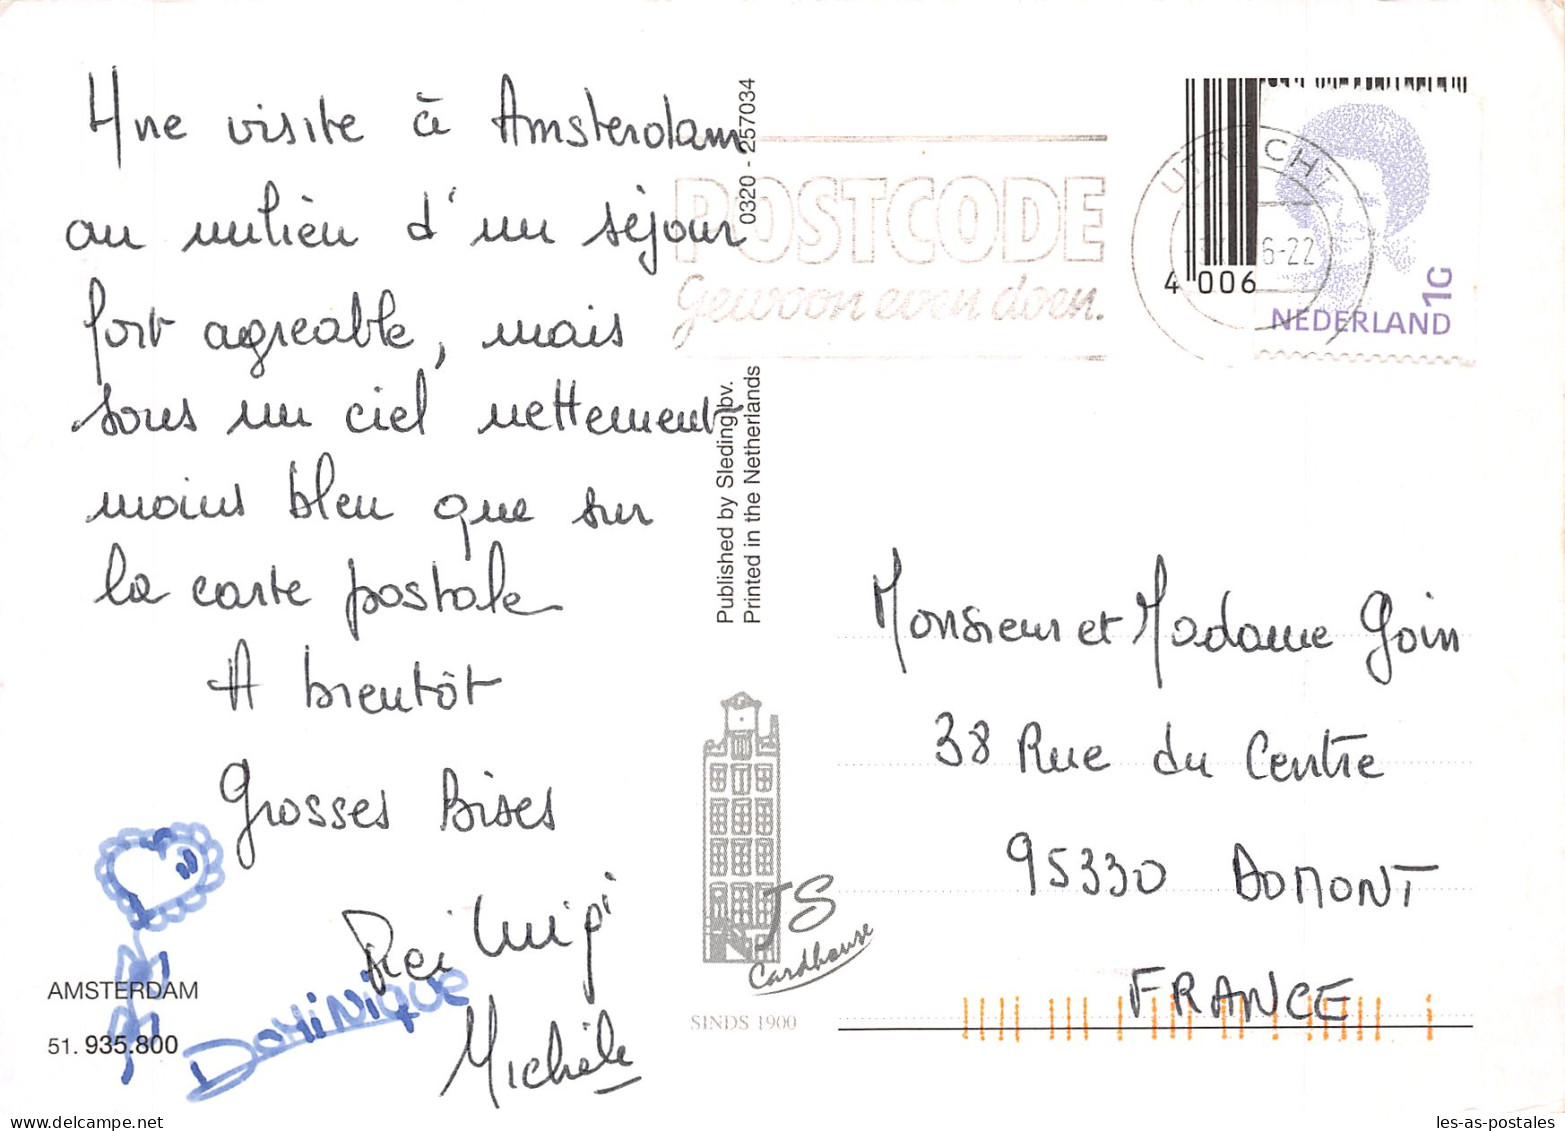 Une visite à Amsterdam
au milieu d'un séjour
fort agréable, mais
sous un ciel nettement
moins bleu que sur
la carte postale
A bientôt
Grosses Bises
Luigi
Dominique
Michèle
AMSTERDAM
51. 935.800
0320 - 257034
Published by Sleding bv.
Printed in the Netherlands
JS
Cardhouse
SINDS 1900
POSTCODE
Gewoon even doen.
UTRECHT
6-22
4 006
1G
NEDERLAND
Monsieur et Madame Goin
38 Rue du Centre
95330 DOMONT
FRANCE
les-as-postales